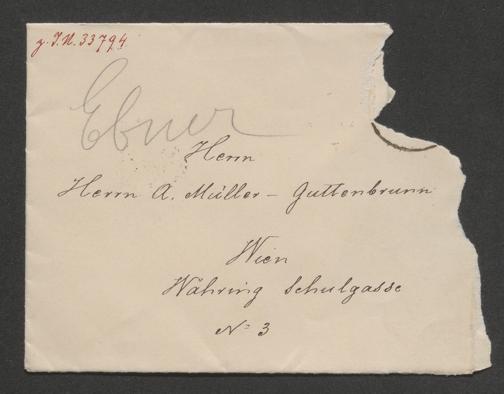 z. I.N. 33794
Ebner
Herrn
Herrn A. Müller - Guttenbrunn
Wien
Währing Schulgasse
No 3